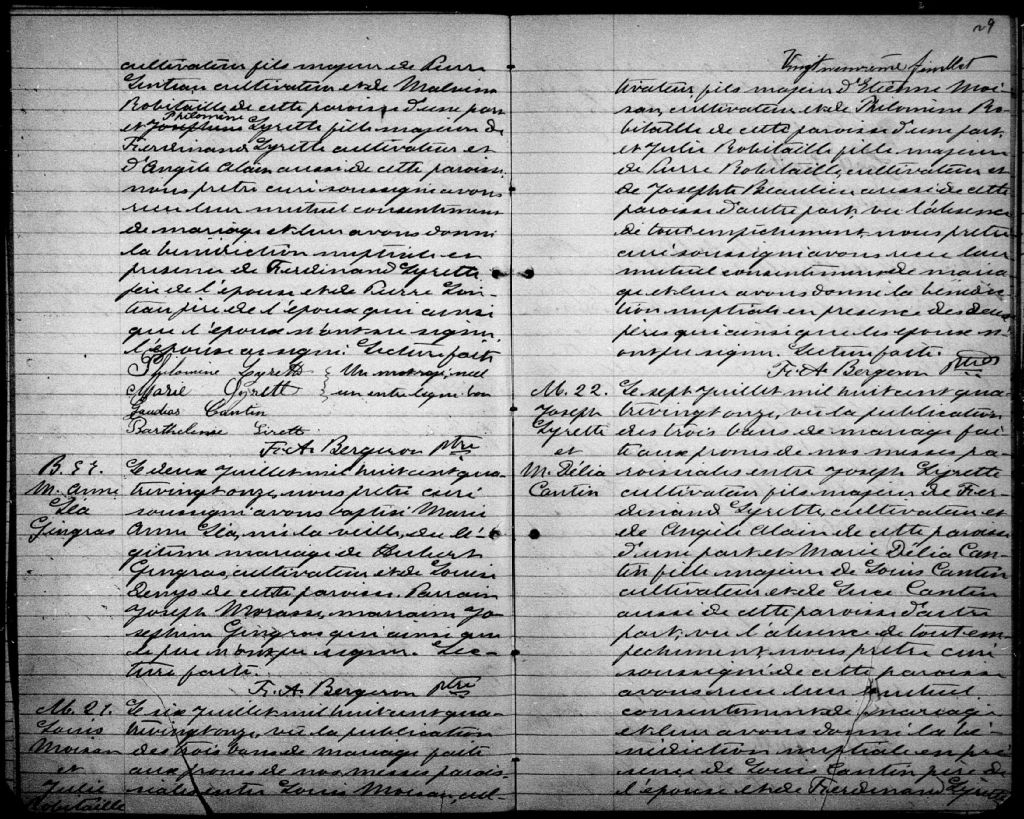 cultivateur fils majeur de Pierre
Gontiau cultivateur et de Malvina
Robitaille de cette paroisse d'une part
Philomène
et Josephine Lyrette fille majeure de
Ferdinand Lyrette cultivateur et
d'Angèle Alain aussi de cette paroisse
nous prêtre curé soussigné avons
reçu leur mutuel consentement
de mariage et leur avons donné
la bénédiction nuptiale en
présence de Ferdinand Lyrette
père de l'épouse et de Pierre
père de l'époux qui ainsi
que l'époux n'ont su signer,
l'épouse a signé. Lecture faite
Philomène Lyrette Un mot rayé nul
Marie Lyrette un entre ligne bon
Gaudias Cantin
Barthelemie Lirett
F. A. Bergeron ptre
B. 
M. Anne
Léa
Gingras
Le deux Juillet mil huit cent qua-
trevingt onze, nous prêtre curé
soussigné avons baptisé Marie
Anne Léa, née la veille, du lé-
gitime mariage de Hubert
Gingras, cultivateur et de Louise
Denys de cette paroisse. Parrain
Joseph Morasse, marraine Jo-
sephine Gingras qui ainsi que
le père n'ont pu signer. Lec-
ture faite.
F. A. Bergeron ptre
M. 21.
Louis
Moisan
et
Julie
Robitaille
Le six Juillet mil huit cent qua-
trevingt onze, vu la publication
des trois bans de mariage faite
aux prônes de nos messes parois-
siales entre Louis Moisan, cul-
29
Vingt neuvième feuillet
tivateur, fils majeur d'Etienne Moi-
san, cultivateur et de Philomène Ro-
bitaille de cette paroisse d'une part,
et Julie Robitaille fille majeure
de Pierre Robitaille, cultivateur et
de Josephte Beaulieu aussi de cette
paroisse d'autre part, vu l'absence
de tout empêchement nous prêtre
curé soussigné avons reçu leur
mutuel consentement de maria-
ge et leur avons donné la bénédic-
tion nuptiale en présence des deux
pères qui ainsi que les époux n'
ont pu signer. Lecture faite.
F. A. Bergeron ptre
M. 22.
Joseph
Lyrette
et
M. Délia
Cantin
Le sept Juillet mil huit cent qua-
trevingt onze, vu la publication
des trois bans de mariage fai-
te aux prônes de nos messes pa-
roissiales entre Joseph Lyrette
cultivateur fils majeur de Fer-
dinand Lyrette, cultivateur et
de Angèle Alain de cette paroisse
d'une part et Marie Délia Can-
tin fille majeure de Louis Cantin
cultivateur et de Luce Cantin
aussi de cette paroisse d'autre
part, vu l'absence de tout em-
pêchement, nous prêtre curé
soussigné de cette paroisse
avons reçu leur mutuel
consentement de mariage
et leur avons donné la bé-
nédiction nuptiale en pré-
sence de Louis Cantin père de
l'épouse et de Ferdinand Lyrette